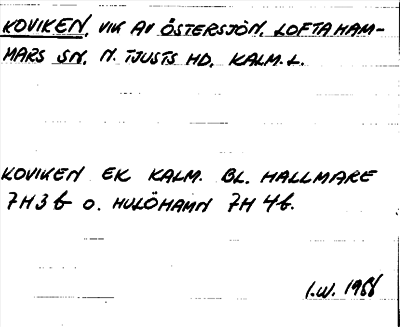 KOVIKEN, VIK AV ÖSTERSJÖN, LOFTAHAM-
MARS SN, N. TJUSTS HD, KALM. L.
KOVIKEN EK KALM. BL. HALLMARE
7H3b O. HULÖHAMN 7H4b.
I.W. 1988